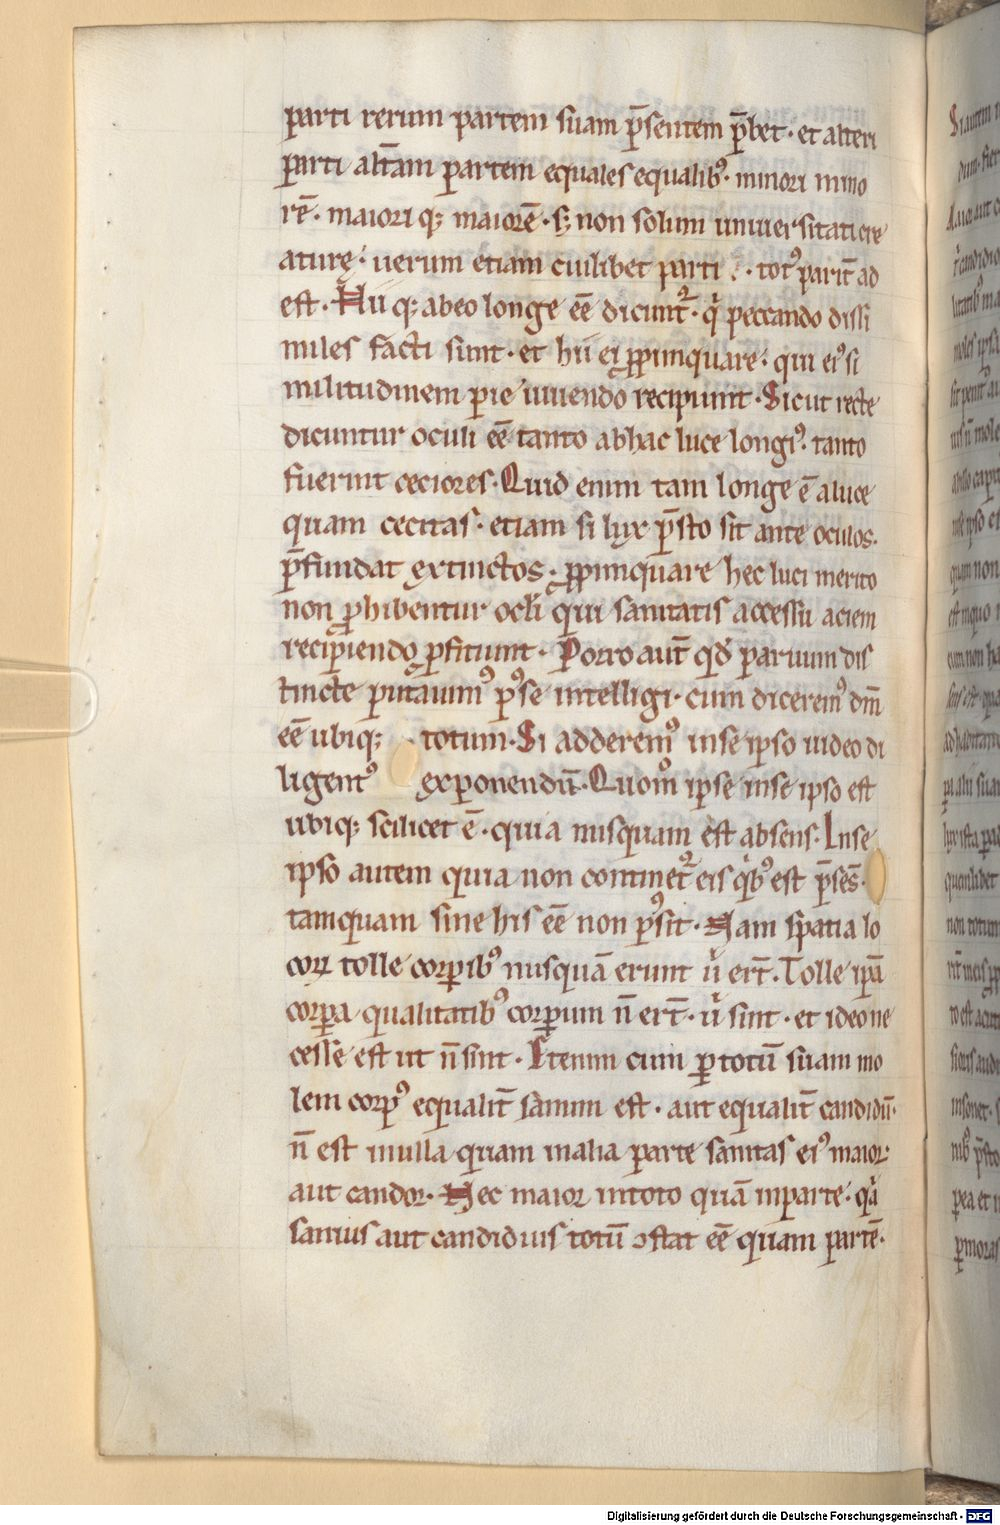 parti rerum partem suam p̄sentem p̄bet · et alteri
parti alt̄am partem equales equalib⁹ · minori mino
rē · maiori q; maiorē · s; non solum uniuersitati cre
aturę · uerum etiam cuilibet parti ei⁹ · tot⁹ parit̄ ad
est · Hii q; ab eo longe eē dicunt᷑ · q̇ peccando dissi
miles facti sunt · et hii ei ꝓpinquare · qui ei⁹ si
militudinem pie uiuendo recipiunt · Sicut recte
dicuntur oculi eē tanto ab hac luce longi⁹ · tanto
fuerint ceciores · Quid enim tam longe ē a luce
quam cecitas · etiam si lux p̄sto sit ante oculos ·
p̄fundat extinctos · ꝓpinquare hec luci merito
non ꝓhibentur ocl̄i qui sanitatis accessu aciem
recipiendo ꝓficiunt · Porro aut̄ qd̄ parum dis
tincte putauim⁹ p⁹se intelligi · cum dicerem⁹ dm̄
eē ubiq; totum · Si adderem⁹ in se ipso uideo di
ligent⁹ exponendū · Quom̊ ipse in se ipso est
ubiq; scilicet ē · quia nusquam est absens · In se
ipso autem quia non continet᷑ eis q̇b⁹ est p̄sēs ·
tamquam sine his eē non p⁹sit · Nam spatia lo
coꝝ tolle corꝑib⁹ nusquā erunt ů ert̄ · Tolle ipā
corꝑa qualitatib⁹ corꝑium n̄ ert̄ · ů sint · et ideo ne
cesse est ut n̄ sint · Itenim cum ꝑ totū suam mo
lem corp⁹ equalit̄ sanum est · aut equalit̄ candidū ·
n̄ est in ulla quam in alia parte sanitas ei⁹ maior
aut candor · Nec maior in toto quā in parte · q̇a
sanius aut candidius totū ↄstat eē quam partē ·
Digitalisierung gefördert durch die Deutsche Forschungsgemeinschaft - DFG